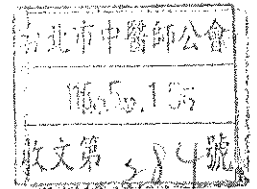 台北市中醫師公會
116.5.15
收文第 584 號